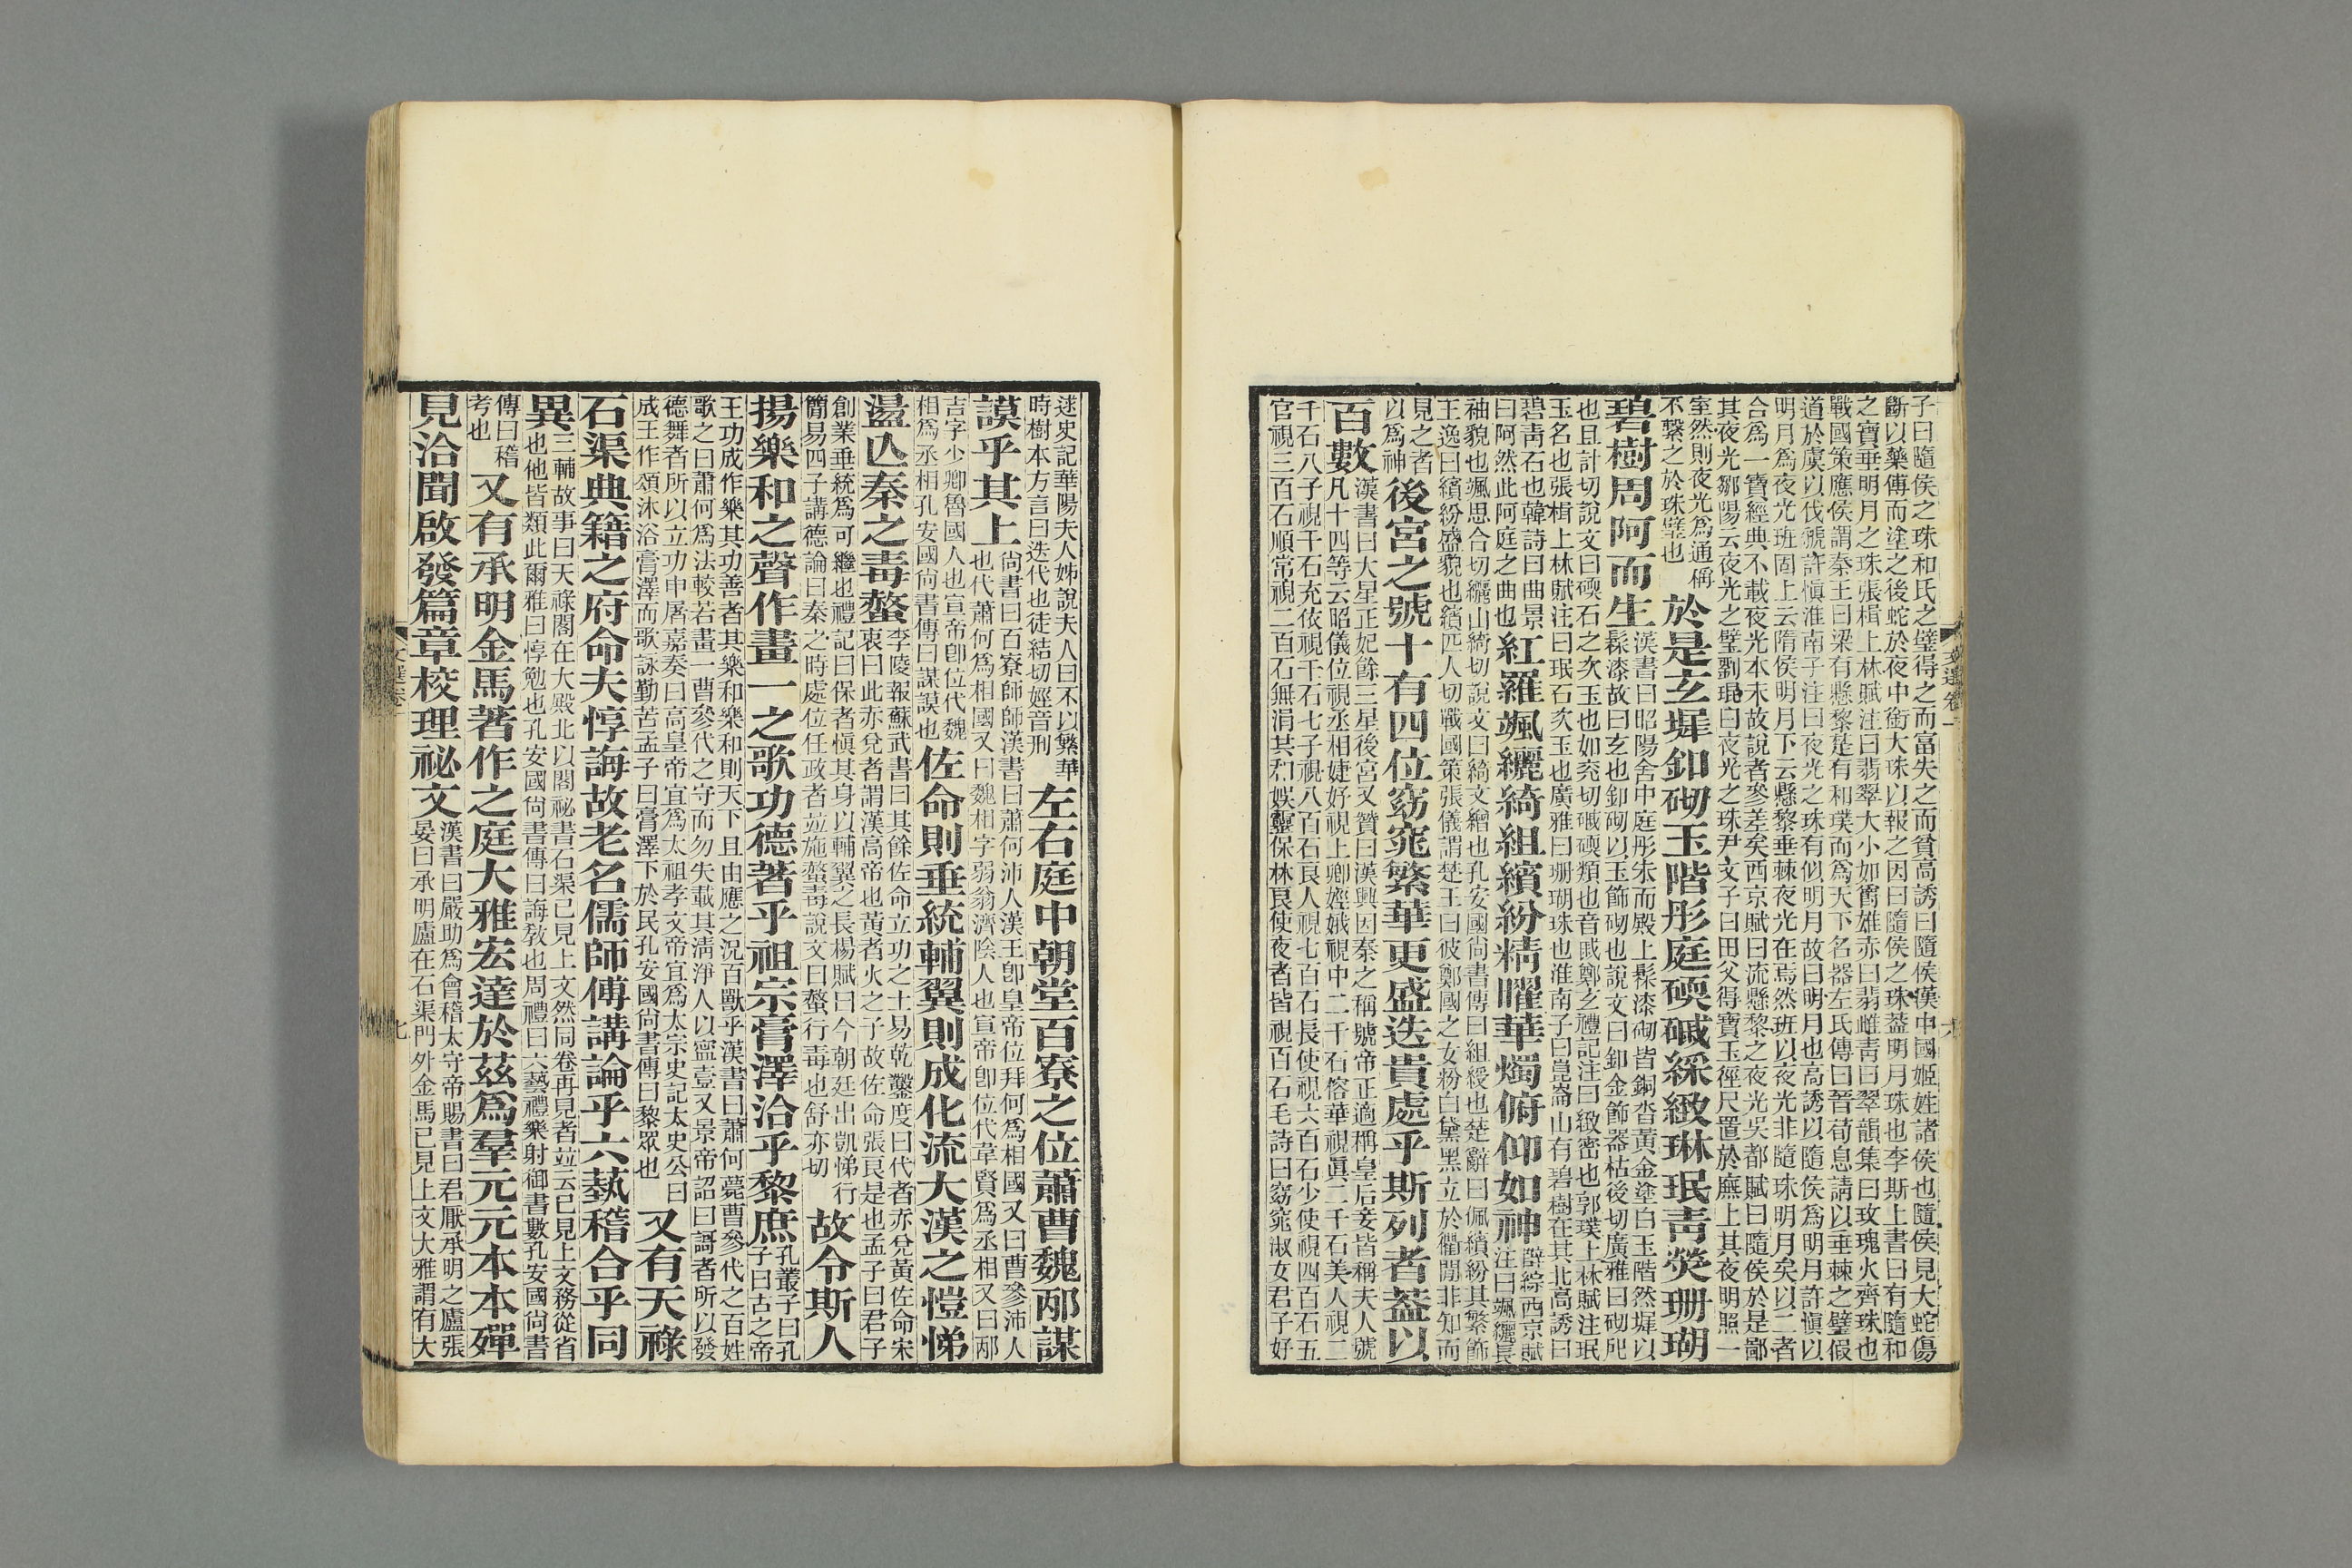 子曰隨侯之珠和氏之璧得之而富失之而貧高誘曰隨侯漢中國姬姓諸侯也隨侯見大蛇傷
斷以藥傅而塗之後蛇於夜中銜大珠以報之因曰隨侯之珠葢明月珠也李斯上書曰有隨和
之寶垂明月之珠張楫上林賦注曰翡翠大小如爵雄赤曰翡雌青曰翠韻集曰玫瑰火齊珠也
戰國策應侯謂秦王曰梁有懸黎楚有和璞而爲天下名器左氏傳曰晉荀息請以垂棘之璧假
道於虞以伐虢許慎淮南子注曰夜光之珠有似明月故曰明月也高誘以隨侯爲明月許慎以
明月爲夜光班固上云隋侯明月下云懸黎垂棘夜光在焉然班以夜光非隨珠明月矣以二者
合爲一寶經典不載夜光本末故說者參差矣西京賦曰流懸黎之夜光吳都賦曰隨侯於是鄙
其夜光鄒陽云夜光之璧劉琨曰夜光之珠尹文子曰田父得寶玉徑尺置於廡上其夜明照一
室然則夜光爲通稱
不繫之於珠璧也
於是玄墀釦砌玉階彤庭碝磩綵緻琳珉青熒珊瑚
碧樹周阿而生
漢書曰昭陽舍中庭彤朱而殿上髹漆砌皆銅沓黃金塗白玉階然墀以
髹漆故曰玄也釦砌以玉飾砌也說文曰釦金飾器枯後切廣雅曰砌戺
也且計切說文曰碝石之次玉也如兖切磩碝類也音戚鄭玄禮記注曰緻密也郭璞上林賦注珉
玉名也張楫上林賦注曰珉石次玉也廣雅曰珊瑚珠也淮南子曰崑崙山有碧樹在其北高誘曰
碧青石也韓詩曰曲景
曰阿然此阿庭之曲也
紅羅颯纚綺組繽紛精曜華燭俯仰如神
薛綜西京賦
注曰颯纚長
袖貌也颯思合切纚山綺切說文曰綺文繒也孔安國尚書傳曰組綬也楚辭曰佩繽紛其繁飾
王逸曰繽紛盛貌也繽匹人切戰國策張儀謂楚王曰彼鄭國之女粉白黛黑立於衢閭非知而
見之者
以爲神
後宮之號十有四位窈窕繁華更盛迭貴處乎斯列者葢以
百數
漢書曰大星正妃餘三星後宮又贊曰漢興因秦之稱號帝正適稱皇后妾皆稱夫人號
凡十四等云昭儀位視丞相婕妤視上卿娙娥視中二千石傛華視眞二千石美人視二
千石八子視千石充依視千石七子視八百石良人視七百石長使視六百石少使視四百石五
官視三百石順常視二百石無涓共和娛靈保林良使夜者皆視百石毛詩曰窈窕淑女君子好
文選卷一
逑史記華陽夫人姊說夫人曰不以繁華
時樹本方言曰迭代也徒結切娙音刑
左右庭中朝堂百寮之位蕭曹魏邴謀
謨乎其上
尚書曰百寮師師漢書曰蕭何沛人漢王卽皇帝位拜何爲相國又曰曹參沛人
也代蕭何爲相國又曰魏相字弱翁濟陰人也宣帝卽位代韋賢爲丞相又曰邴
吉字少卿魯國人也宣帝卽位代魏
相爲丞相孔安國尚書傳曰謀謨也
佐命則垂統輔翼則成化流大漢之愷悌
盪亾秦之毒螫
李陵報蘇武書曰其餘佐命立功之士易乾鑿度曰代者亦兌黃佐命宋
衷曰此亦兌者謂漢高帝也黃者火之子故佐命張良是也孟子曰君子
創業垂統爲可繼也禮記曰保者愼其身以輔翼之長楊賦曰今朝廷出凱悌行
簡易四子講德論曰秦之時處位任政者竝施螫毒說文曰螫行毒也舒亦切
故令斯人
揚樂和之聲作畫一之歌功德著乎祖宗膏澤洽乎黎庶
孔叢子曰孔
子曰古之帝
王功成作樂其功善者其樂和樂和則天下且由應之況百獸乎漢書曰蕭何薨曹參代之百姓
歌之曰蕭何爲法較若畫一曹參代之守而勿失載其清淨人以寧壹又景帝詔曰謌者所以發
德舞者所以立功申屠嘉奏曰高皇帝宜爲太祖孝文帝宜爲太宗史記太史公曰
成王作頌沐浴膏澤而歌詠勤苦孟子曰膏澤下於民孔安國尚書傳曰黎眾也
又有天祿
石渠典籍之府命夫惇誨故老名儒師傅講論乎六蓺稽合乎同
異
三輔故事曰天祿閣在大殿北以閣祕書石渠已見上文然同卷再見者竝云已見上文務從省
也他皆類此爾雅曰惇勉也孔安國尚書傳曰誨敎也周禮曰六藝禮樂射御書數孔安國尚書
傳曰稽
考也
又有承明金馬著作之庭大雅宏達於茲爲羣元元本本殫
見洽聞啟發篇章校理祕文
漢書曰嚴助爲會稽太守帝賜書曰君厭承明之廬張
晏曰承明廬在石渠門外金馬已見上文大雅謂有大
文選卷一
九